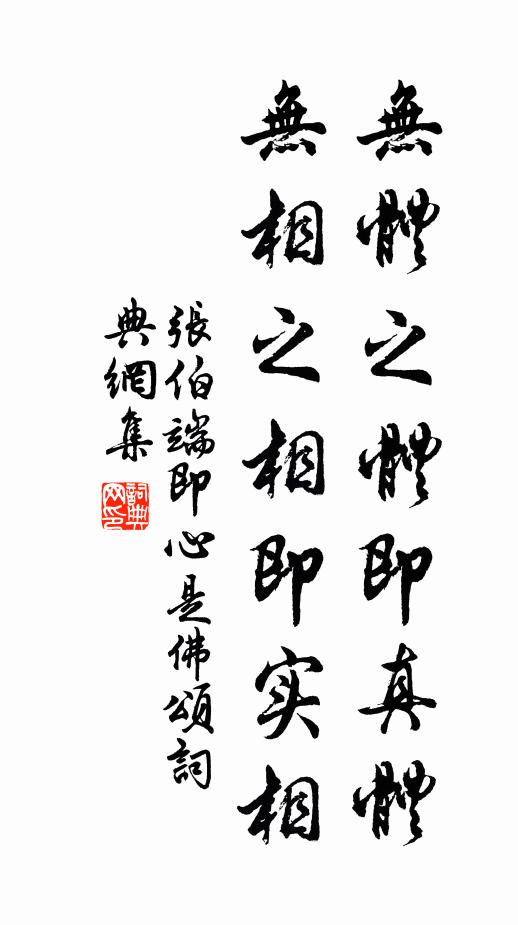 無體之體即真體
無相之相即实相
張伯端即心是佛頌詞
典網集
詞典网印